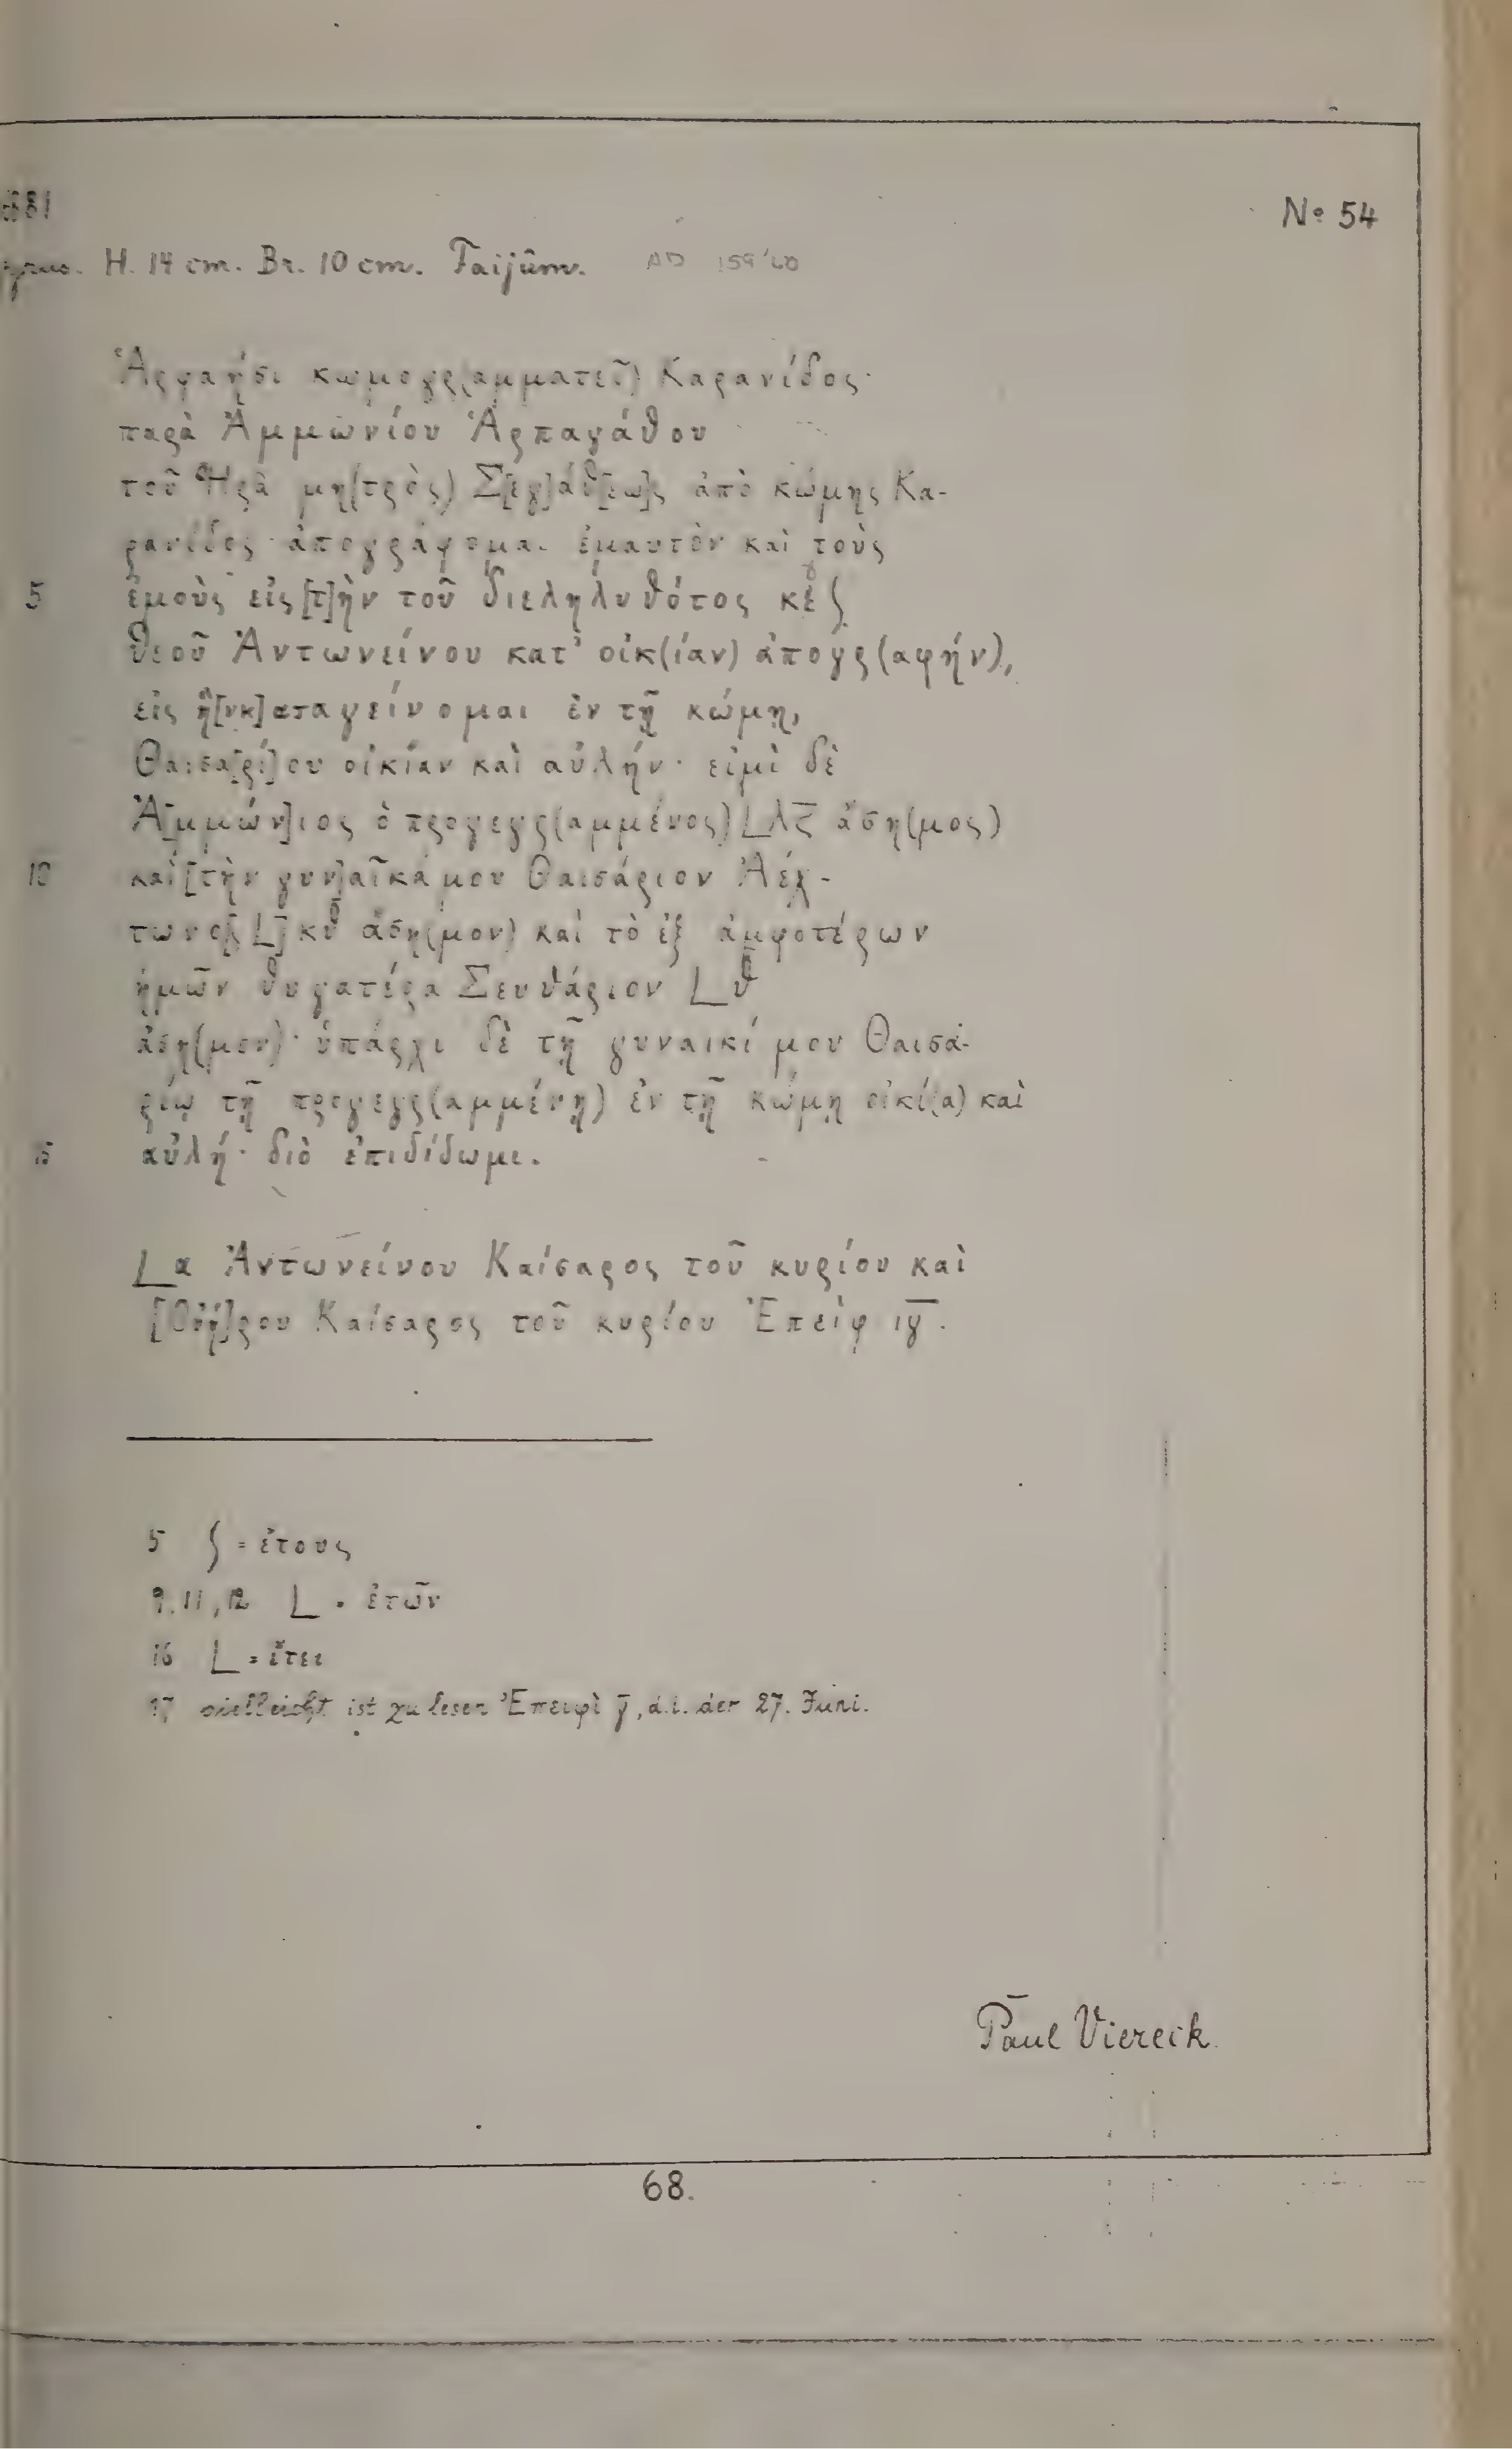 681
No 54
H. 14 cm. Br. 10 cm. Faijûm. AD 159/60
Ἁρφαήσι κωμογρ(αμματεῖ) Καρανίδος·
παρὰ Ἀμμωνίου Ἁρπαγάθου
τοῦ Ἡρᾶ μη(τρὸς) Σ[εγ]άθ[εω]ς ἀπὸ κώμης Κα-
ρανίδος· ἀπογράφομαι ἐμαυτὸν καὶ τοὺς
5 ἐμοὺς εἰς [τ]ὴν τοῦ διεληλυθότος κγ ʃ
θεοῦ Ἀντωνείνου κατ' οἰκ(ίαν) ἀπογρ(αφήν),
εἰς ἣ[ν κ]αταγείνομαι ἐν τῇ κώμῃ,
Θαισα[ρί]ου οἰκίαν καὶ αὐλήν· εἰμὶ δὲ
Ἀ[μμών]ιος ὁ προγεγρ(αμμένος) L λϛ ἄση(μος)
10 καὶ [τὴν γυν]αῖκά μου Θαισάριον Ἀέχ-
τωνο[ς L] κθ ἄση(μον) καὶ τὸ ἐξ ἀμφοτέρων
ἡμῶν θυγατέρα Σευθάριον L θ
ἄση(μον)· ὑπάρχι δὲ τῇ γυναικί μου Θαισα-
ρίῳ τῇ προγεγρ(αμμένῃ) ἐν τῇ κώμῃ οἰκί(α) καὶ
15 αὐλή· διὸ ἐπιδίδωμι.
L α Ἀντωνείνου Καίσαρος τοῦ κυρίου καὶ
[Οὐή]ρου Καίσαρος τοῦ κυρίου Ἐπεὶφ ιγ.
5 ʃ = ἔτους
9, 11, 12 L = ἐτῶν
16 L = ἔτει
17 vielleicht ist zu lesen Ἐπειφὶ γ, d.i. der 27. Juni.
Paul Viereck.
68.